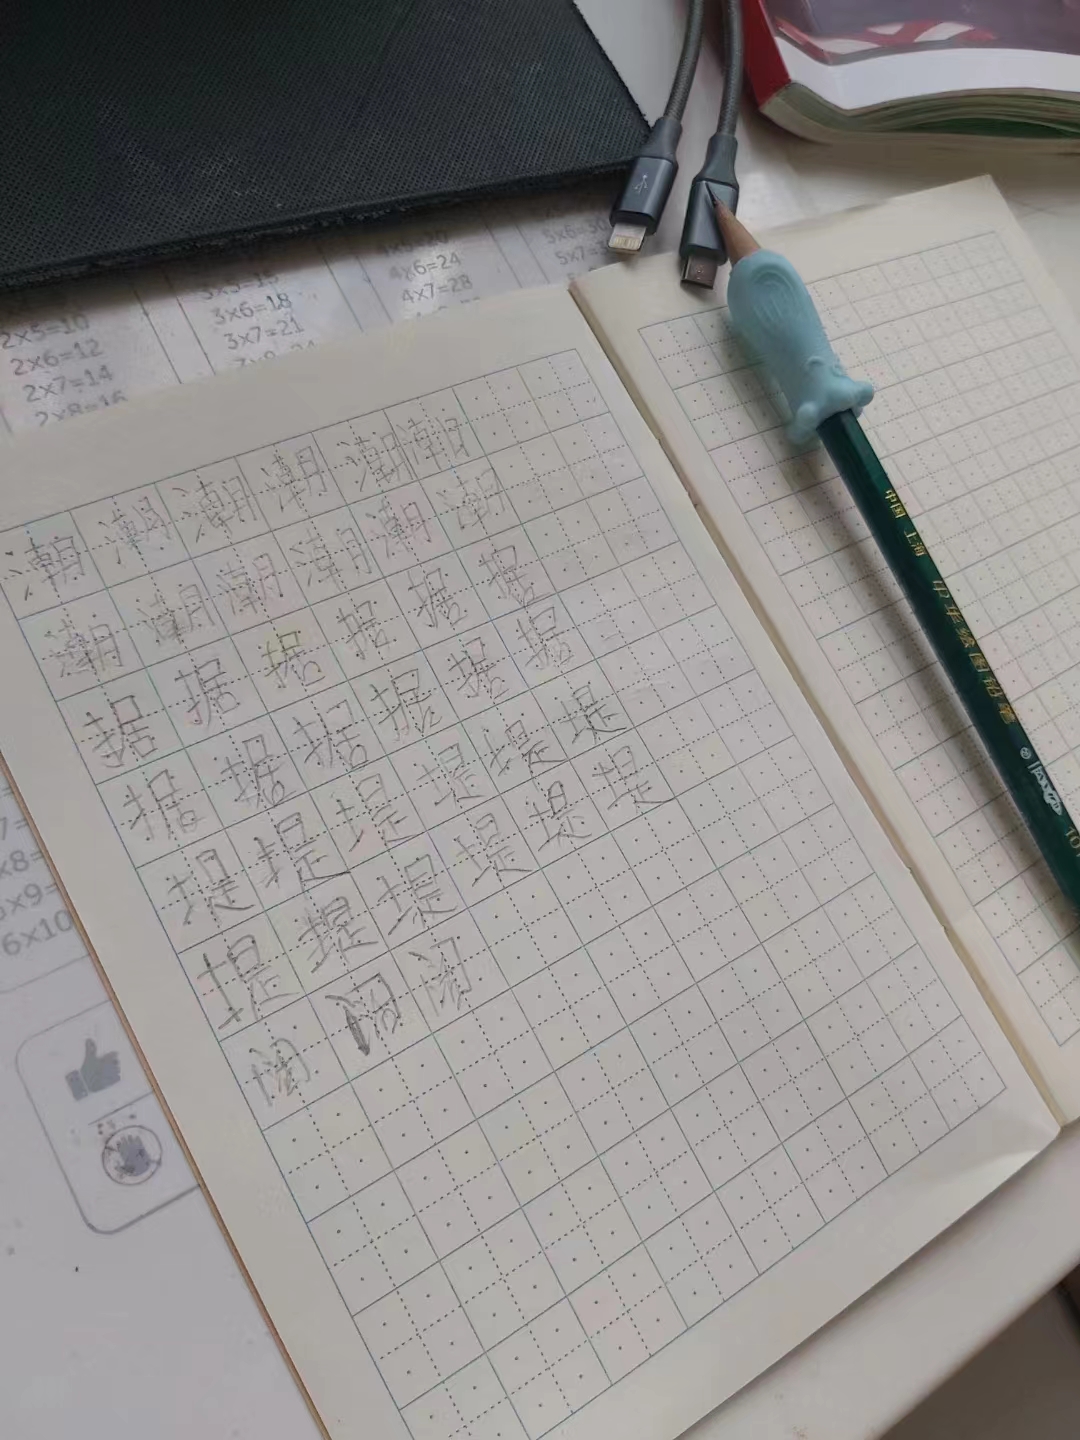 2×5=10
2×6=12
2×7=14
2×8=16
3×5=15
3×6=18
3×7=21
4×5=20
4×6=24
4×7=28
5×6=30
潮潮潮潮潮潮
潮潮潮潮潮潮
据据据据据据
据据据据据据
堤堤堤堤堤堤
堤堤堤堤堤堤
阔阔阔
中国 上海 中华绘图铅笔